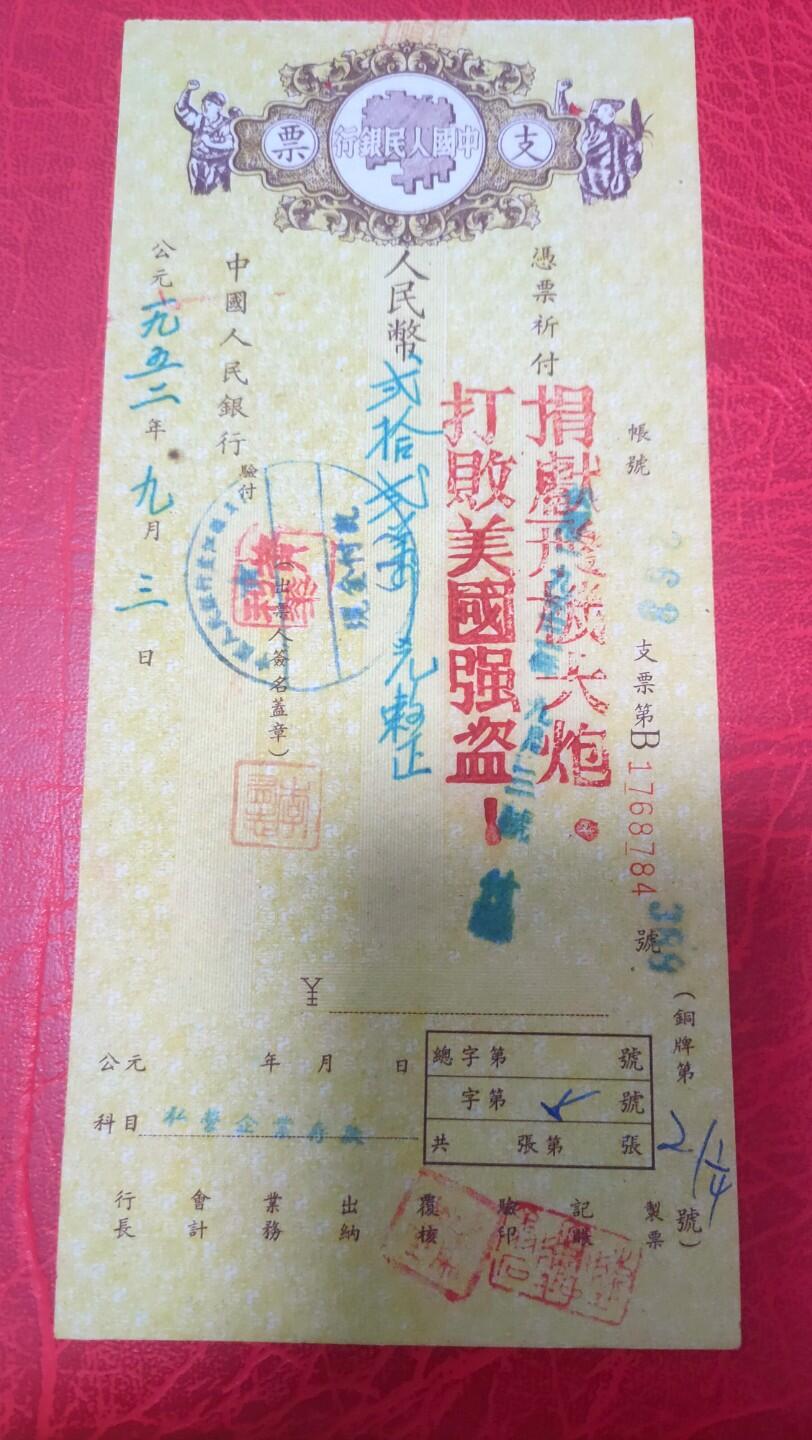 支票
中國人民銀行
帳號
268
支票第B1768784號
399
(銅牌第
2/14
號)
憑票祈付
捐獻飛機大炮.
打敗美國强盗!
人民幣貳拾貳萬元整正
¥
(出票人簽名蓋章)
現金付訖
中國人民銀行驗付
公元一九五二年九月三日
公元 年 月 日
科目 私營企業存款
總字第 號
字第 號
共 張第 張
行長
會計
業務
出納
覆核
驗印
記賬
製票